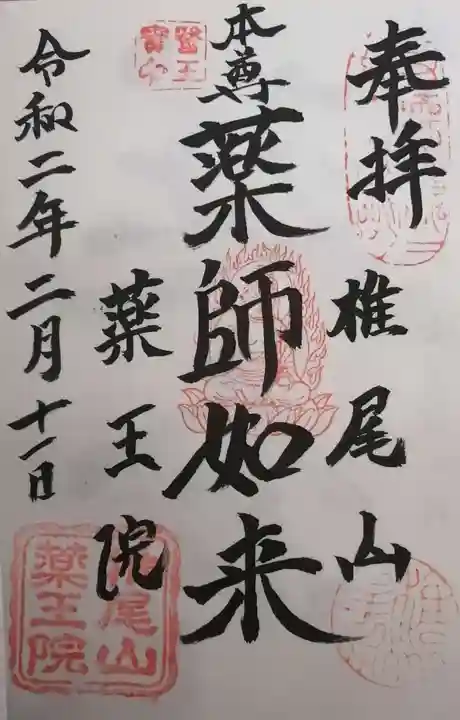 奉拝
椎尾山
本尊
薬師如来
薬王院
令和二年二月十一日
醫王寳印
椎尾山
薬王院